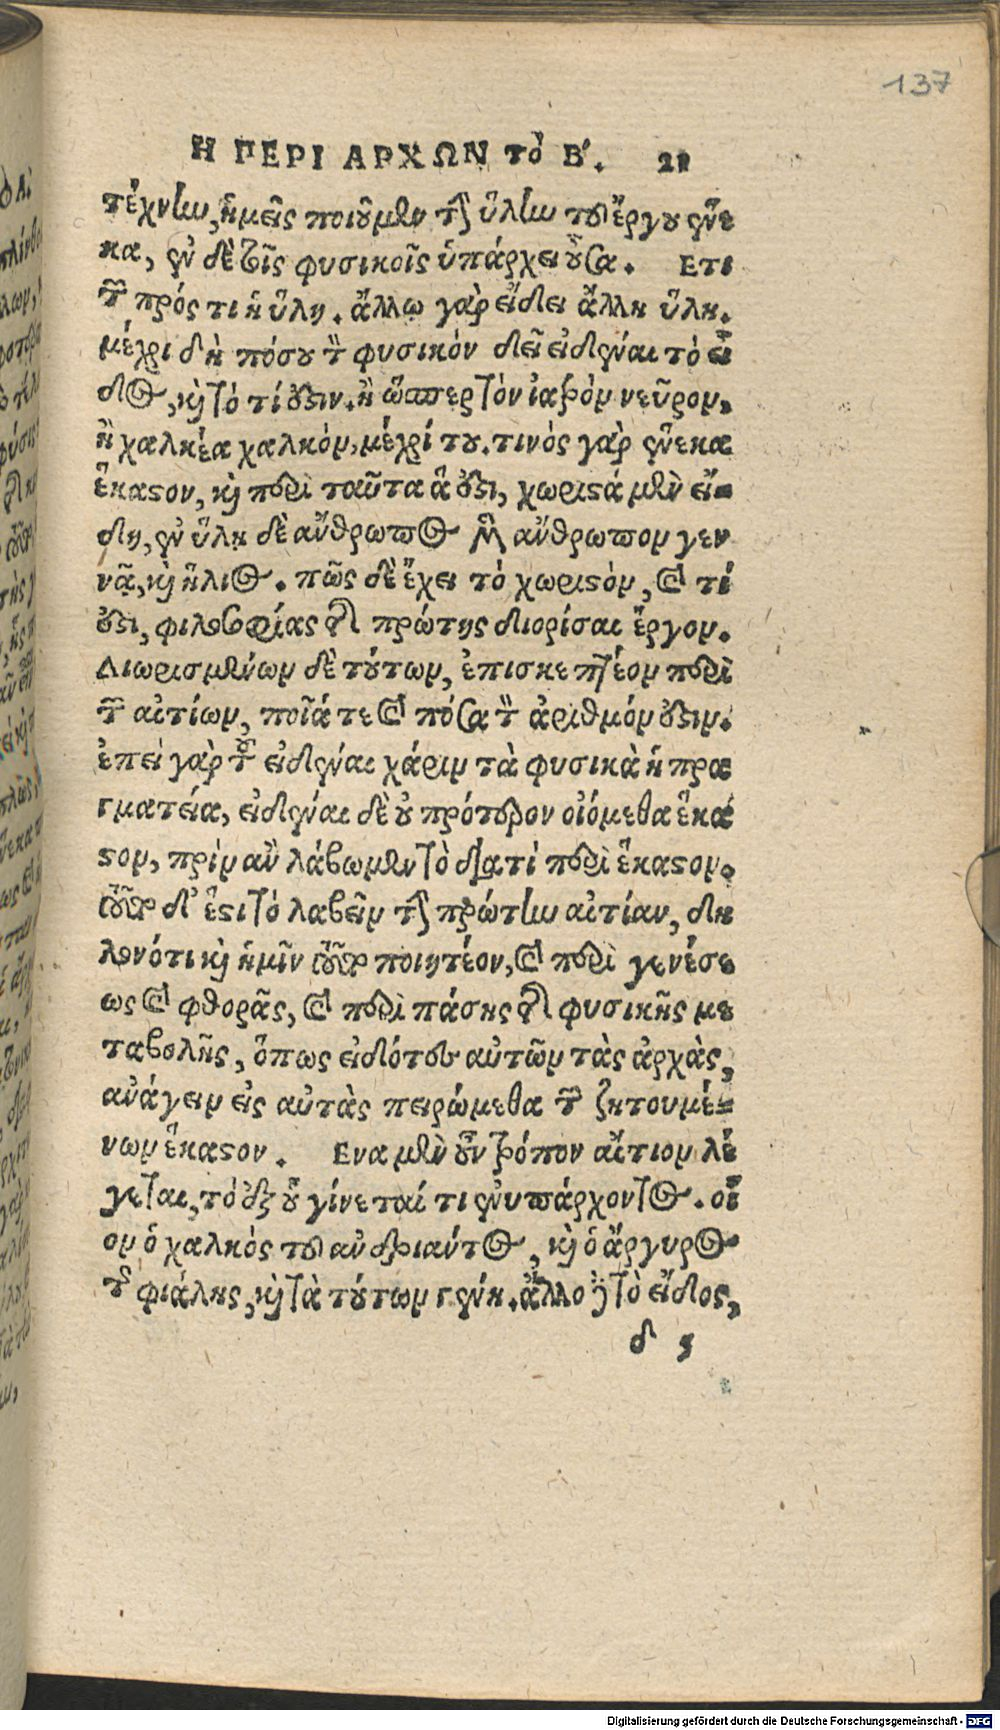 137
Η ΠΕΡΙ ΑΡΧΩΝ τὸ Β'. 21
τέχνην, ἡμεῖς ποιοῦμεν τὴν ὕλην τοῦ ἔργου ἕνε
κα, ἐν δὲ τοῖς φυσικοῖς ὑπάρχει οὖσα. Ετι
τῶν πρός τι ἡ ὕλη. ἄλλῳ γὰρ εἴδει ἄλλη ὕλη.
μέχρι δὴ πόσου τὸν φυσικὸν δεῖ εἰδέναι τὸ εἶ
δος, καὶ τὸ τί ἐστιν. ἢ ὥσπερ τὸν ἰατρὸν νεῦρον,
ἢ χαλκέα χαλκὸν, μέχρί του. τινὸς γὰρ ἕνεκα
ἕκαστον, καὶ περὶ ταῦτα ἅ ἐστι, χωριστά μὲν εἴ-
δη, ἐν ὕλῃ δὲ ἄνθρωπος γὰρ ἄνθρωπον γεν
νᾷ, καὶ ἥλιος. πῶς δὲ ἔχει τὸ χωριστὸν, καὶ τί
ἐστι, φιλοσοφίας τῆς πρώτης διορίσαι ἔργον.
Διωρισμένων δὲ τούτων, ἐπισκεπτέον περὶ
τῶν αἰτίων, ποῖά τε καὶ πόσα τὸν ἀριθμόν ἐστιν.
ἐπεὶ γὰρ τοῦ εἰδέναι χάριν τὰ φυσικὰ ἡ πρα
γματεία, εἰδέναι δὲ οὐ πρότερον οἰόμεθα ἕκα
στον, πρὶν ἂν λάβωμεν τὸ διατί περὶ ἕκαστον.
τοῦτο δ' ἔστι τὸ λαβεῖν τὴν πρώτην αἰτίαν, δη
λονότι καὶ ἡμῖν τοῦτο ποιητέον, καὶ περὶ γενέσε
ως καὶ φθορᾶς, καὶ περὶ πάσης τῆς φυσικῆς με
ταβολῆς, ὅπως εἰδότες αὐτῶν τὰς ἀρχὰς,
ἀνάγειν εἰς αὐτὰς πειρώμεθα τῶν ζητουμέ-
νων ἕκαστον. Ενα μὲν οὖν τρόπον αἴτιον λέ
γεται, τὸ ἐξ οὗ γίνεταί τι ἐνυπάρχοντος. οἷ
ον ὁ χαλκὸς τοῦ ἀνδριάντος, καὶ ὁ ἄργυρος
τῆς φιάλης, καὶ τὰ τούτων γένη. ἄλλο δὲ τὸ εἶδος,
d 5
Digitalisierung gefördert durch die Deutsche Forschungsgemeinschaft - DFG